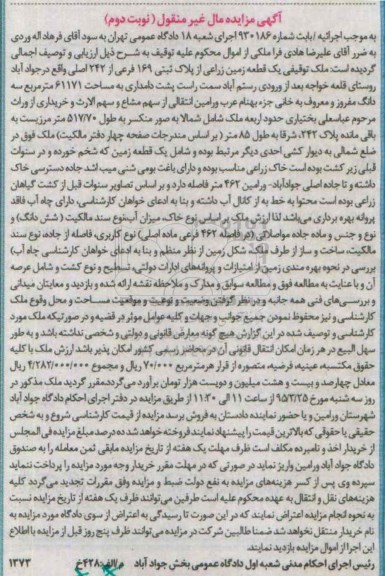 آگهی مزایده مال غیر منقول ( نوبت دوم )
به موجب اجرائیه /بابت شماره ۹۳۰۱۸۶ اجرای شعبه ۱۸ دادگاه عمومی تهران به سود آقای فرهاد اله وردی
به ضرر آقای علیرضا هادی فرا ملکی از اموال محکوم علیه توقیف به شرح ذیل ارزیابی و توصیف اجمالی
گردیده است: ملک توقیفی یک قطعه زمین زراعی از پلاک ثبتی ۱۶۹ فرعی از ۲۴۲ اصلی واقع در جواد آباد
روستای قلعه خواجه بعد از ورودی رستم آباد سمت راست پشت دامداری به مساحت ۶۱۱۷۱ مترمربع سه
دانگ مفروز و معروف به خانی جزء بهنام عرب ورامین انتقالی از سهم مشاع و سهم الارث و خریداری از وراث
مرحوم عباسعلی بختیاری حدود اربعه ملک شامل شمالا به صور منکسر به طول ۵۱۷/۷۰ متر مرزیست به
باقی مانده پلاک ۲۴۲، شرقا به طول ۸۵ متر ( بر اساس مندرجات صفحه چهار دفتر مالکیت) ملک فوق در
ضلع شمالی به دیوار کشی احدی دیگر مرتبط بوده و شامل یک قطعه زمین که شخم خورده و در سنوات
قبلی زیر کشت بوده است خاک زراعی مناسب بوده و دارای بافت بومی شنی میباشد جاده دسترسی خاک
داشته و تا جاده اصلی جوادآباد- ورامین ۴۶۲ متر فاصله دارد و بر اساس تصاویر سنوات قبل از کشت گیاهان
زراعی بوده است محتوا به خط به از کانال آب داشته و بنا به ادعای خواهان کارشناسی، دارای چاه آب فاقد
پروانه بهره برداری میباشد لذا ارزش ملک بر اساس نوع خاک، میزان آب، نوع سند مالکیت ( شش دانگ) و
نوع و جنس و ماده جاده مواصلاتی (در فاصله ۴۶۲ فرعی ماده اصلی) نوع کاربری، فاصله از جاده، نوع سند
مالکیت، ساخت و ساز از طرف مالک، شکل زمین از نظر منظم و بنا به ادعای خواهان کارشناسی چاه آب)
بررسی در نحوه بهره مندی زمین از امتیازات و پروانه‌های ادارات دولتی، تسطیح و نوع کشت و شامل عرصه
آن و با عنایت به مطالعه فوق و مطالعه سوابق و مدارک و ملاحظه نقشه ارائه شده و بازدید و معاینات میدانی
و بررسی‌های فنی همه جانبه و در نظر گرفتن وضعیت و نوعیت و موقعیت مساحت و محل وقوع ملک
کارشناسی و نیز محفوظ نمودن جمیع جوانب و جهات و کلیه عوامل موثر در قضیه و در صورتیکه ملک مورد
کارشناسی و توصیف شده در این گزارش هیچ گونه معارض قانونی و دولتی و شخصی نداشته باشد و به طور
سهل البیع در هر زمان امکان انتقال قانونی آن در محاضر رسمی کشور امکان پذیر باشد ارزش ملک با کلیه
حقوق مکتسبه، عینیه، فرضیه، متصوره از قرار هر مترمربع ۷۰/۰۰۰ ریال و مجموع ۴/۲۸۲/۰۰۰/۰۰۰ ریال
معادل چهارصد و بیست و هشت میلیون و دویست هزار تومان برآورد می‌گردد. مقرر گردید ملک مذکور در
روز سه شنبه مورخ ۹۵/۳/۲۵ از ساعت ۱۱ الی ۱۱:۲۰ از طریق مزایده در دفتر اجرای احکام دادگاه جواد آباد
شهرستان ورامین و با حضور نماینده دادستان به فروش برسد مزایده از قیمت کارشناسی شروع و به شخص
حقیقی یا حقوقی که بالاترین قیمت را پیشنهاد نمایند فروخته خواهد شد ده درصد مبلغ مزایده فی المجلس
از خریدار اخذ و نامبرده مکلف است ظرف مهلت یک هفته از تاریخ مزایده مابقی ثمن معامله را به صندوق
دادگاه جواد آباد ورامین واریز نماید در صورتی که در مهلت مقرر خریدار وجه مورد مزایده را پرداخت ننماید
سپرده وی پس از کسر هزینه‌های مزایده به نفع دولت ضبط و مزایده وفق مقررات تجدید می‌گردد کلیه
هزینه‌های نقل و انتقال به عهده محکوم علیه است طرفین می‌توانند ظرف یک هفته از تاریخ مزایده نسبت
به نحوه انجام مزایده اعتراض نمایند که در این صورت تا رسیدگی به اعتراض از سوی دادگاه مورد مزایده به
نام خریدار منتقل نخواهد شد ضمنا طالبین شرکت در مزایده می‌توانند ظرف پنج روز قبل از مزایده با اطلاع
این اجرا از اموال مزایده بازدید نمایند.
رئیس اجرای احکام مدنی شعبه اول دادگاه عمومی بخش جواد آباد م/الف: ۴۲۸خ ۱۳۷۳